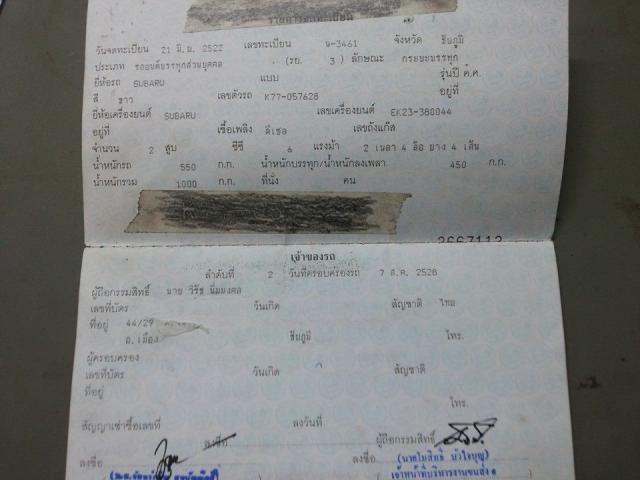 รายการจดทะเบียน
วันจดทะเบียน 21 มิ.ย. 2522 เลขทะเบียน น-3461 จังหวัด ชัยภูมิ
ประเภท รถยนต์บรรทุกส่วนบุคคล (รย. 3) ลักษณะ กระบะบรรทุก
ยี่ห้อรถ SUBARU แบบ รุ่นปี ค.ศ.
สี ขาว เลขตัวรถ K77-057628 อยู่ที่
ยี่ห้อเครื่องยนต์ SUBARU เลขเครื่องยนต์ EK23-380044
อยู่ที่ เชื้อเพลิง ดีเซล เลขถังแก๊ส
จำนวน 2 สูบ ซีซี แรงม้า 2 เพลา 4 ล้อ ยาง 4 เส้น
น้ำหนักรถ 550 ก.ก. น้ำหนักบรรทุก/น้ำหนักลงเพลา 450 ก.ก.
น้ำหนักรวม 1000 ก.ก. ที่นั่ง คน
2667112
เจ้าของรถ
ลำดับที่ 2 วันที่ครอบครองรถ 7 ต.ค. 2528
ผู้ถือกรรมสิทธิ์ นาย วิรัช นิ่มมงคล
เลขที่บัตร วันเกิด สัญชาติ ไทย
ที่อยู่ 44/29
อ.เมือง ชัยภูมิ โทร.
ผู้ครอบครอง
เลขที่บัตร วันเกิด สัญชาติ
ที่อยู่
โทร.
สัญญาเช่าซื้อเลขที่ ลงวันที่
ลงชื่อ ผู้ถือกรรมสิทธิ์
ลงชื่อ ลงชื่อ (นายโมสิทธิ์ บัวใจบุญ)
เจ้าหน้าที่บริหารงานขนส่ง